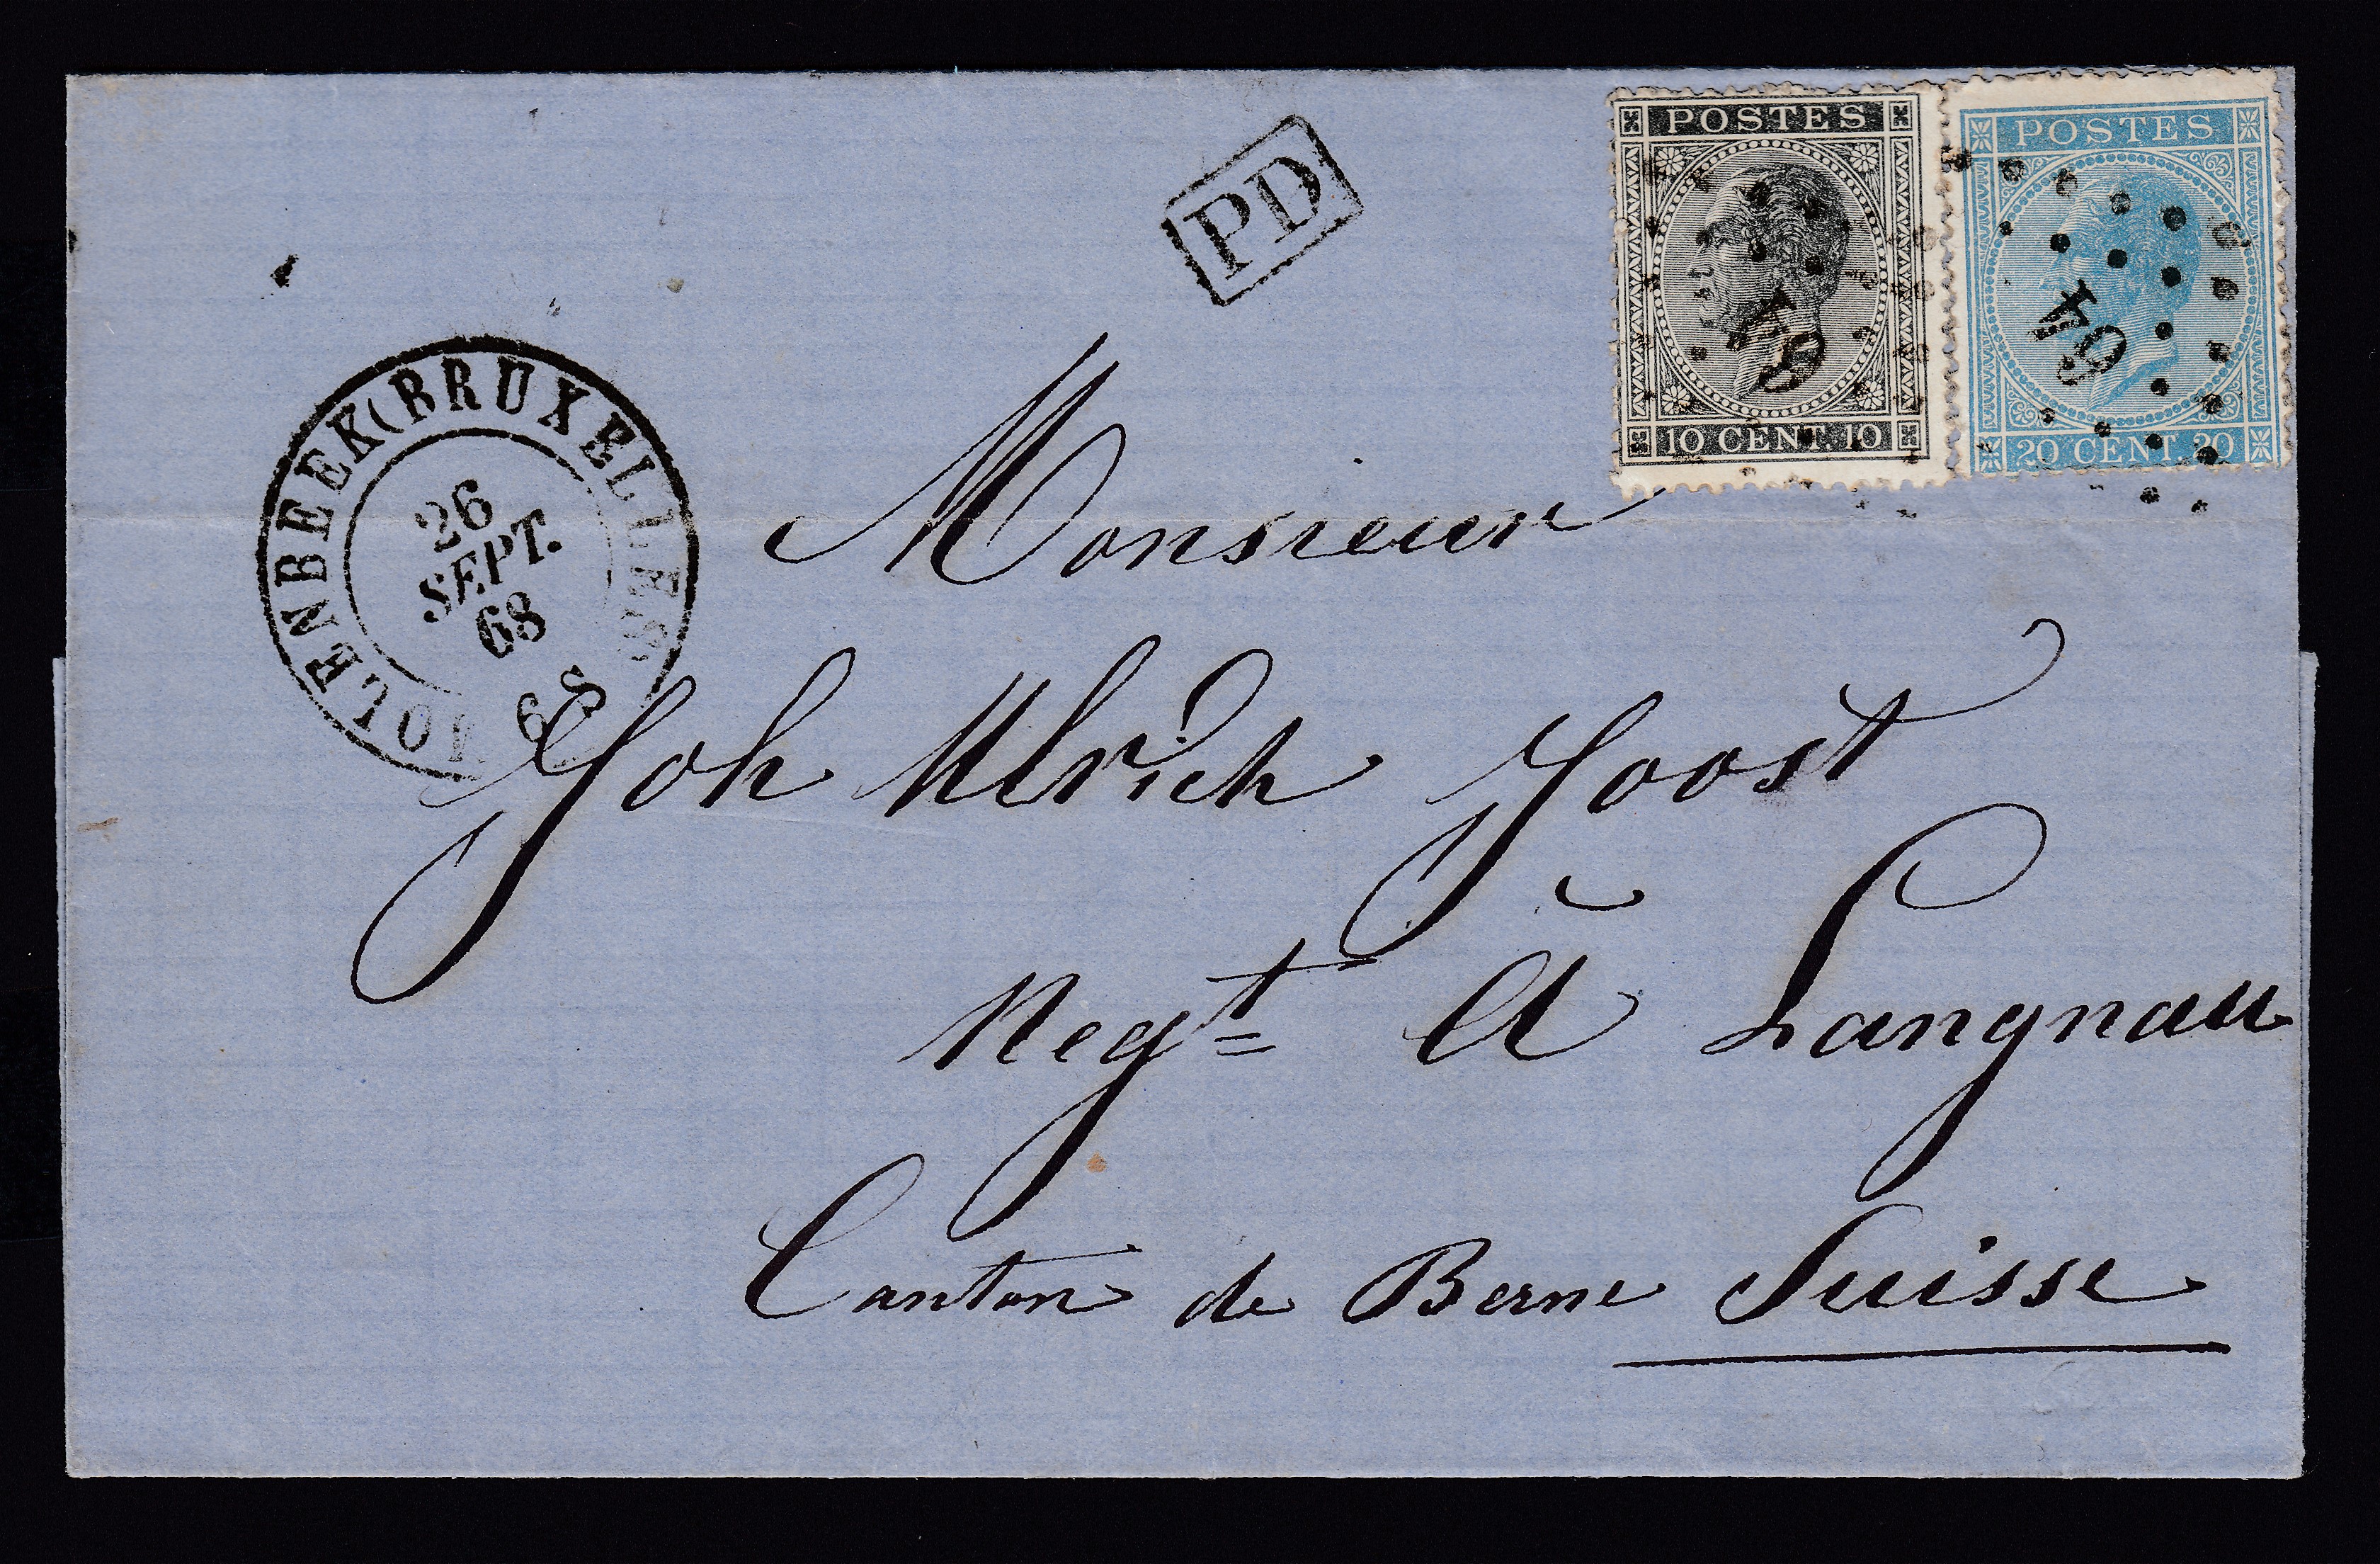 PD
POSTES
10 CENT. 10
POSTES
20 CENT. 20
64
64
MOLENBEEK (BRUXELLES)
26
SEPT.
68
9 S
Monsieur
Joh Ulrich Joost
Negt à Langnau
Canton de Berne Suisse